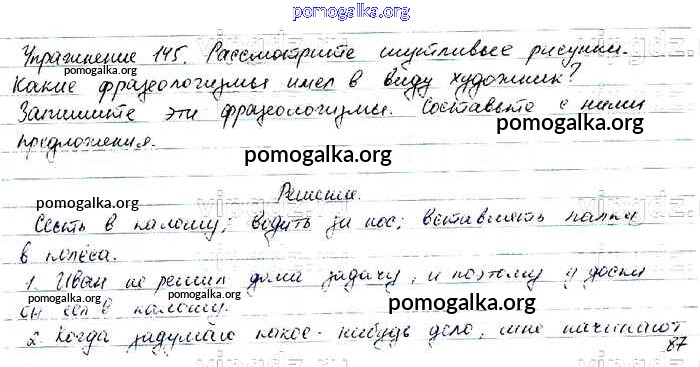 pomogalka.org
Упражнение 145. Рассмотрите шутливые рисунки.
pomogalka.org
Какие фразеологизмы имел в виду художник?
Запишите эти фразеологизмы. Составьте с ними
pomogalka.org
предложения.
pomogalka.org
Решение.
pomogalka.org
Сесть в калошу; водить за нос; вставлять палки
в колёса.
1. Иван не решил дома задачу, и поэтому у доски
pomogalka.org pomogalka.org
он сел в калошу.
pomogalka.org
2. Когда задумаю какое-нибудь дело, мне начинают
87